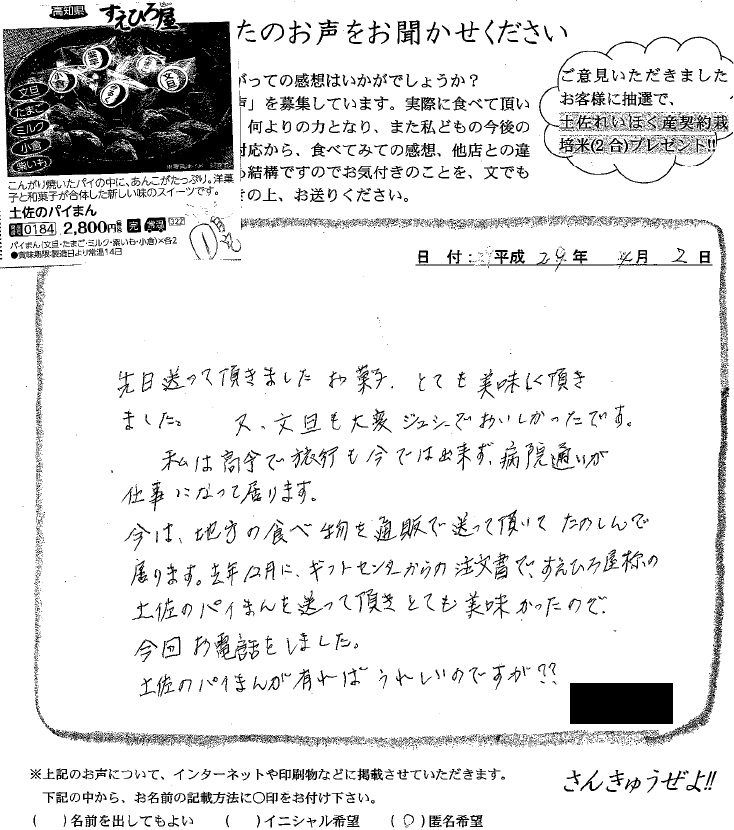 高知県 すえひろ屋
たのお声をお聞かせください
がっての感想はいかがでしょうか？
声」を募集しています。実際に食べて頂い
何よりの力となり、また私どもの今後の
対応から、食べてみての感想、他店との違
結構ですのでお気付きのことを、文でも
の上、お送りください。
ご意見いただきました
お客様に抽選で、
土佐れいほく産契約栽
培米(2合)プレゼント!!
文旦
たまご
ミルク
小倉
紫いも
小倉
文旦
こんがり焼いたパイの中に、あんこがたっぷり。洋菓
子と和菓子が合体した新しい味のスイーツです。
土佐のパイまん
0184 2,800円 常温 322
パイまん(文旦・たまご・ミルク・紫いも・小倉)×各2
●賞味期限:製造日より常温14日
①
日 付: 平成 29 年 4 月 2 日
先日送って頂きました お菓子、とても 美味しく頂き
ました。 又、文旦も大変 ジューシーでおいしかったです。
私は高令で旅行も今では出来ず、病院通いが
仕事になって居ります。
今は、地方の食べ物を通販で送って頂いて たのしんで
居ります。去年12月に、ギフトセンターからの注文書で、すえひろ屋様の
土佐のパイまんを送って頂き とても美味かったので、
今回お電話をしました。
土佐のパイまんが有れば うれしいのですが??
※上記のお声について、インターネットや印刷物などに掲載させていただきます。
下記の中から、お名前の記載方法に○印をお付け下さい。
( )名前を出してもよい ( )イニシャル希望 (○)匿名希望
さんきゅうぜよ!!